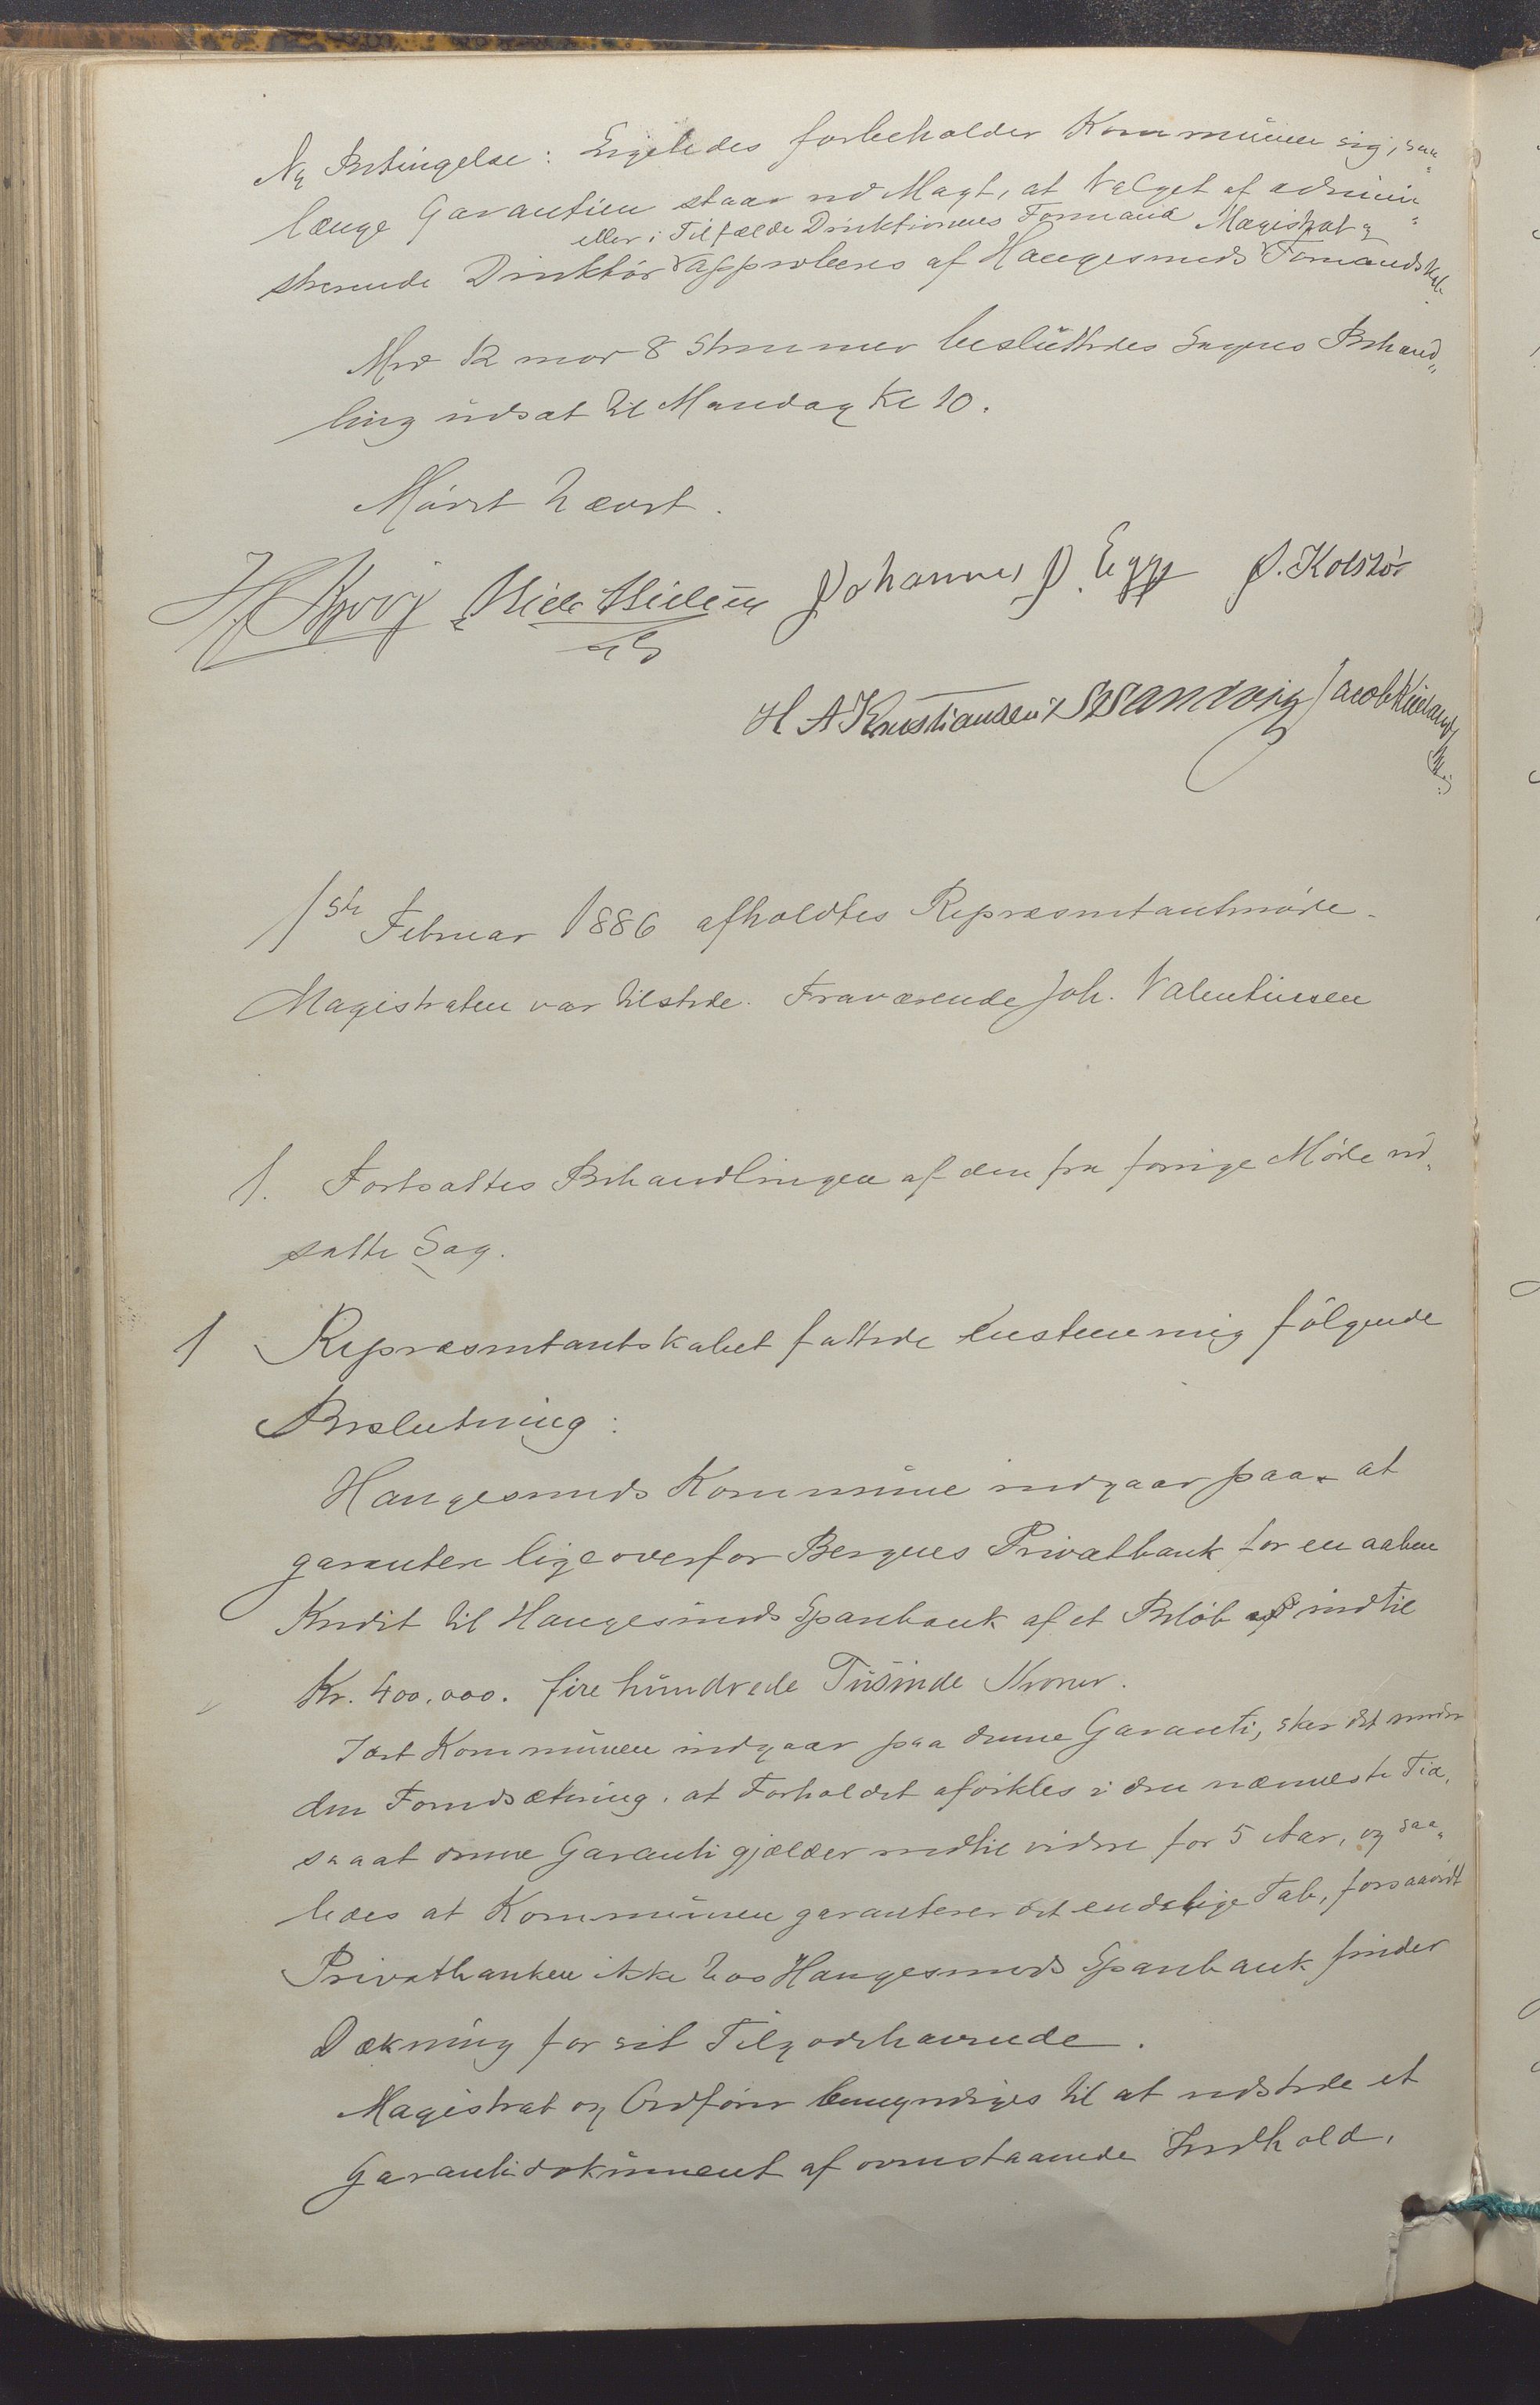 Ny Betingelse: Ligeledes forbeholder Kommunen sig, saa„
længe Garantien staar ved Magt, at Valget af admini„
eller i Tilfælde Direktionens Formand Magistrat og
strerende Direktør approberes af Haugesunds Formandskab.
Med 12 mod 8 Stemmer besluttedes Sagens Behand„
ling udsat til Mandag Kl 10.
Mødet hævet.
Johannes J. Egge J. Kolstø
H A Kristiansen Jacob Kieland
1ste Februar 1886 afholdtes Repræsentantmøde.
Magistraten var tilstede. Fraværende Joh. Valentinsen
1. Fortsattes Behandlingen af den fra forrige Møde ud„
satte Sag.
1 Repræsentantskabet fattede enstemmig følgende
Beslutning:
Haugesunds Kommune indgaar paa at
garantere ligeoverfor Bergens Privatbank for en aaben
Kredit til Haugesunds Sparebank af et Beløb af indtil
Kr. 400.000. fire hundrede Tusinde Kroner.
Idet Kommunen indgaar paa denne Garanti, sker det under
den Forudsætning, at Forholdet afvikles i den nærmeste Tid,
saa at denne Garanti gjælder indtil videre for 5 Aar, og saa„
ledes at Kommunen garanterer det endelige Tab, forsaavidt
Privatbanken ikke hos Haugesunds Sparebank finder
Dækning for sit Tilgodehavende.
Magistrat og Ordfører bemyndiges til at udstede et
Garantidokument af ovenstaaende Indhold.